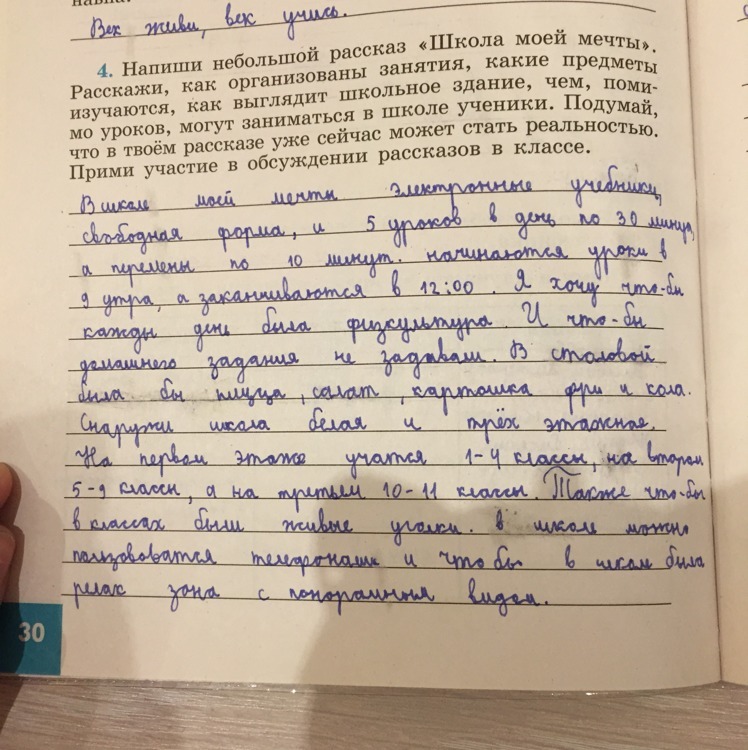 Век живи, век учись.
4. Напиши небольшой рассказ «Школа моей мечты».
Расскажи, как организованы занятия, какие предметы
изучаются, как выглядит школьное здание, чем, поми-
мо уроков, могут заниматься в школе ученики. Подумай,
что в твоём рассказе уже сейчас может стать реальностью.
Прими участие в обсуждении рассказов в классе.
В школе моей мечты электронные учебники,
свободная форма, и 5 уроков в день по 30 минут,
а перемены по 10 минут. начинаются уроки в
9 утра, а заканчиваются в 12:00. Я хочу что-бы
кажды день была физкультура. И что-бы
домашнего задания не задавали. В столовой
была бы пицца, салат, картошка фри и кола.
Снаружи школа белая и трёх этажная.
На первом этаже учатся 1-4 классы, на втором
5-9 классы, а на третьем 10-11 классы. Также что-бы
в классах были живые уголки. в школе можно
пользоватся телефонами и что бы в школе была
релак зона с панорамным видом.
30